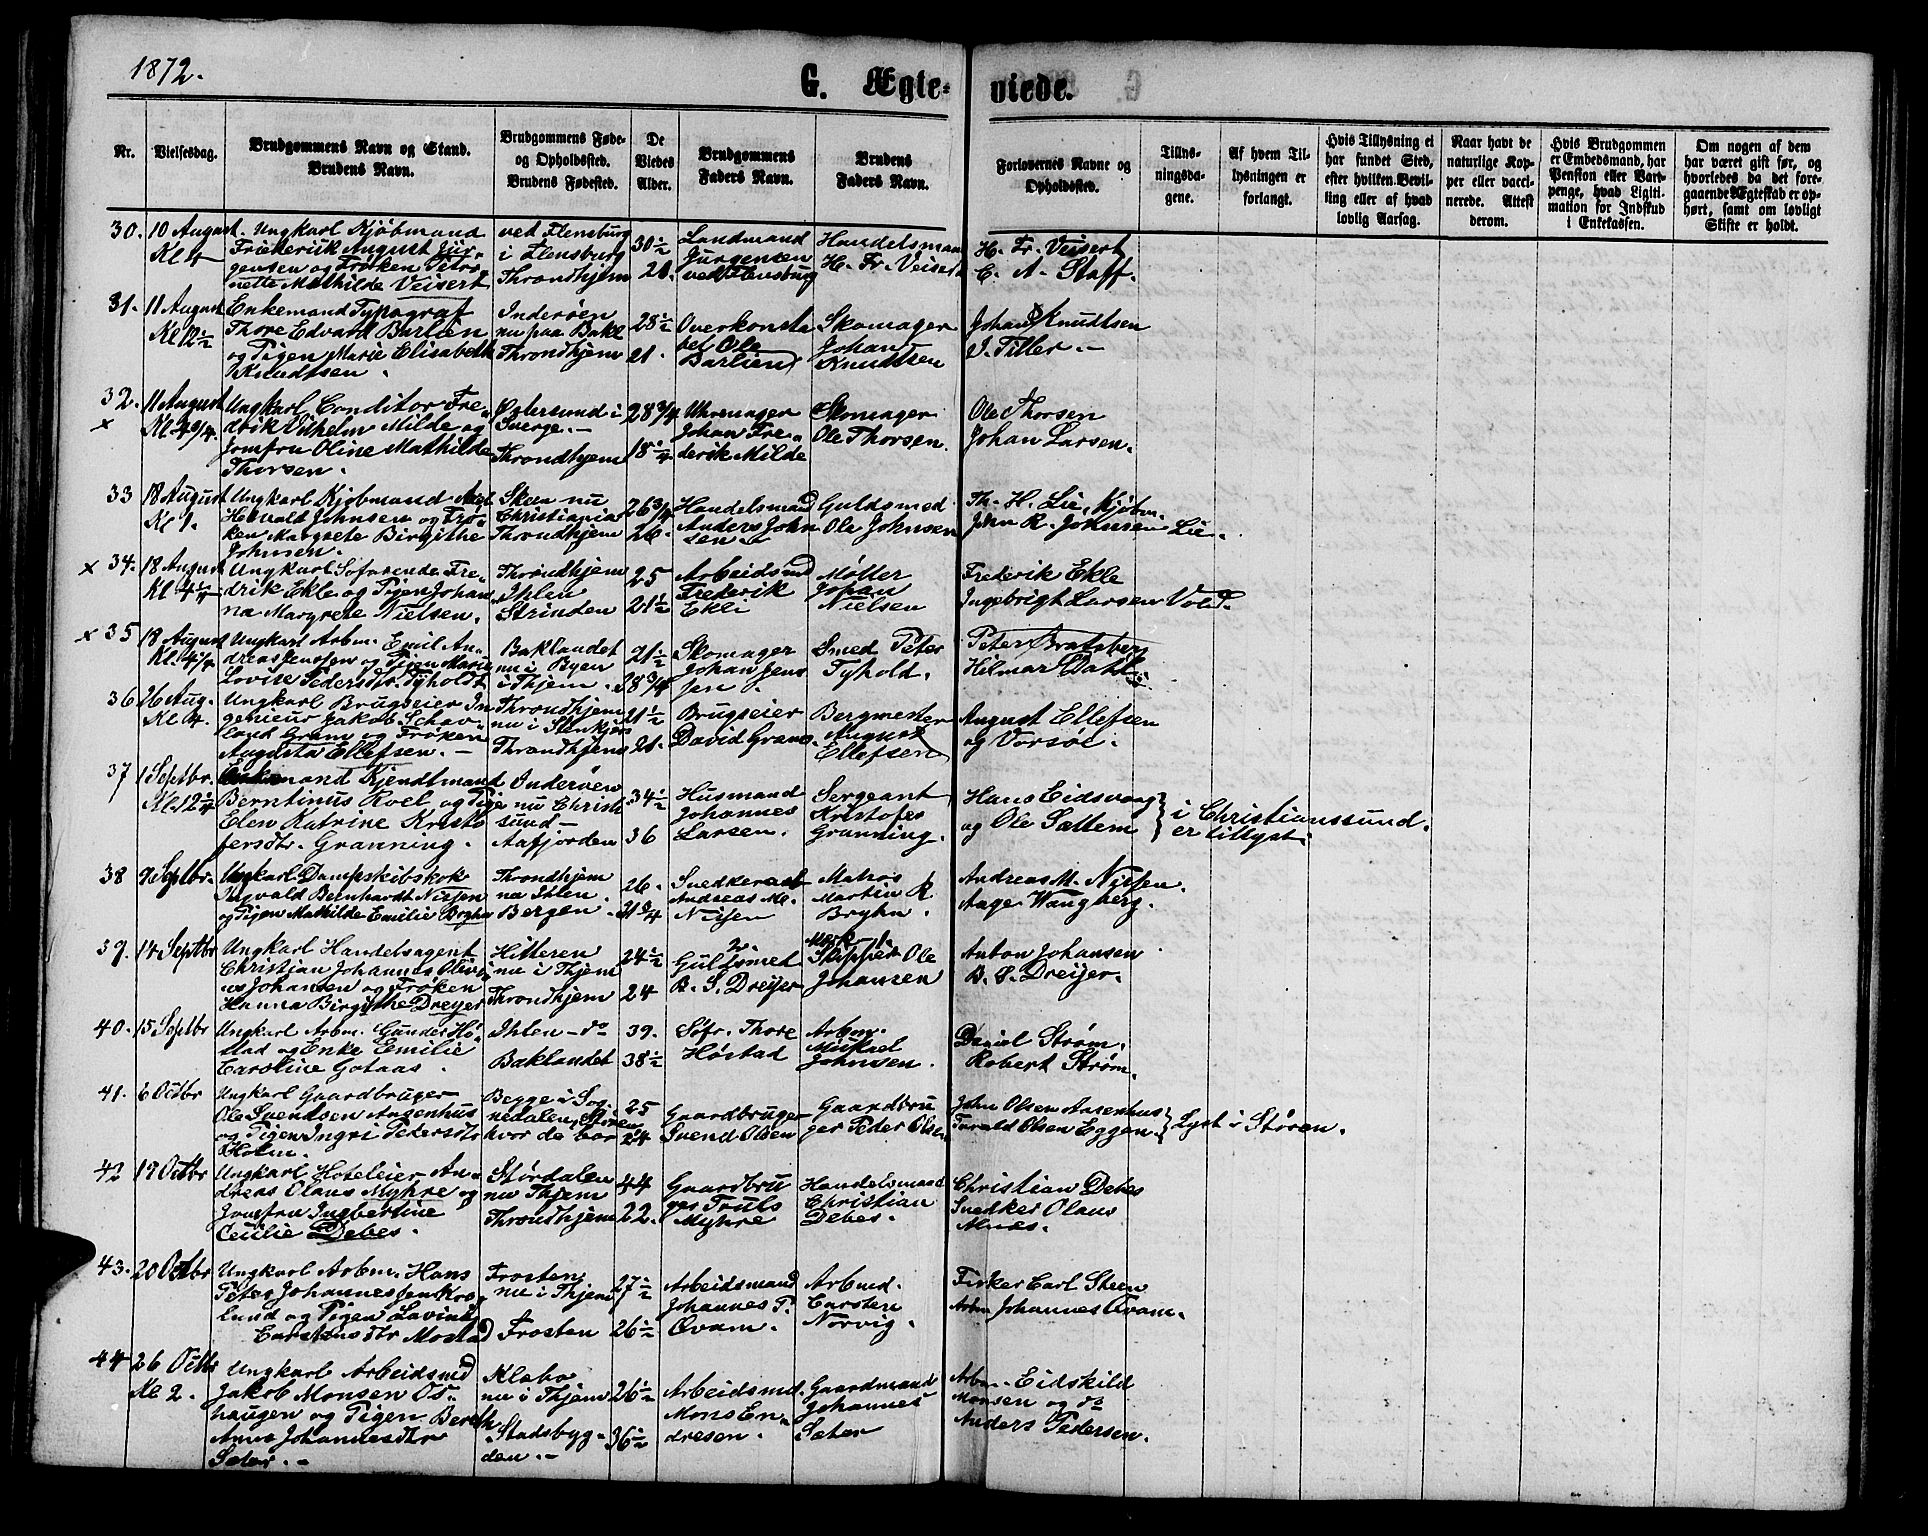 1872.
G. Ægte-
viede.
Nr.
Vielsesdag.
Brudgommens Navn og Stand.
Brudens Navn.
Brudgommens Føde-
og Opholdssted.
Brudens Fødested.
De
Viedes
Alder.
Brudgommens
Faders Navn.
Brudens
Faders Navn.
Forlovernes Navne og
Opholdssted.
Tillys-
ningsda-
gene.
Af hvem Til-
lysningen er
forlangt.
Hvis Tillysning ei
har fundet Sted,
efter hvilken Bevil-
ling eller af hvad
lovlig Aarsag.
Naar havt de
naturlige Kop-
per eller vacci-
nerede. Attest
derom.
Hvis Brudgommen
er Embedsmand, har
Pension eller Vart-
penge, hvad Ligiti-
mation for Indskud
i Enkekassen.
Om nogen af dem
har været gift før, og
hvorledes da det fore-
gaaende Ægteskab er op-
hørt, samt om lovligt
Skifte er holdt.
30.
10 August.
Kl 4
Ungkarl Kjöbmand
Friederik August Jür-
gensen og Frøken Petro-
nette Mathilde Veisert
ved Flensburg
i Flensburg
Throndhjem
30½
21.
Landmand
Jürgensen
ved Flensburg
Handelsmand
H. Fr. Veisert
H. Fr. Veisert
C. A. Staff.
31.
11 August
Kl 12½
Enkemand Typograf
Thore Edvard Barlien
og Pigen Marie Elisabeth
Knudtsen.
Inderøen
nu paa Bakl
Throndhjem
28½
21.
Overkonsta
bel Ole
Barlien
Skomager
Johan
Knudtsen
Johan Knudtsen
J. Tiller.
32.
x
11 August
Kl 4¾.
Ungkarl Conditor Fre-
drik Vilhelm Milde og
Jomfru Oline Mathilde
Thorsen.
Østersund i
Sverge.
Throndhjem
28¾
18¼
Uhrmager
Johan Fre-
derik Milde
Skomager
Ole Thorsen.
Ole Thorsen
Johan Larsen.
33
18 August
Kl 1.
Ungkarl Kjøbmand Axel
Hervald Johnsen og Frø-
ken Margrete Birgithe
Johnsen.
Skien nu
Christiania
Throndhjem
26¾
26.
Handelsmand
Anders John
sen
Guldsmed
Ole Johnsen
Th. H. Lie, Kjøbm.
John R. Johnsen Lie.
x 34.
18 August
Kl 4½
Ungkarl Søfarende Fre-
drik Ekle og Pigen Johan-
na Margrete Nielsen.
Throndhjem
Ihlen
Strinden
25
21½
Arbeidsmd
Frederik
Ekli
Møller
Johan
Nielsen
Frederik Ekle
Ingebrigt Larsen Vold.
x 35
18 August
Kl. 4¼
Ungkarl Arbm. Emil An-
dreas Jenssen og Pigen Marie
Lovise Pedersdtr. Tyholdt
Baklandet
nu i Byen
i Thjem.
21½
28¾
Skomager
Johan Jens
sen.
Smed Peter
Tyhold.
Peter Bratsberg
Hilmar Dahl
36
26 Aug.
Kl 4.
Ungkarl Brugseier In
genieur Jakob Schav-
land Gram og Frøken
Augusta Ellefsen.
Throndhjem
nu i Stenkjær
Throndhjem
21½
21.
Brugseier
David Gram
Bergmester
August
Ellefsen
August Ellefsen
og Vorsøe.
37
1 Septbr.
Kl. 12¼
Enkemand Kjendtmand
Berntinus Roel og Pige
Elen Katrine Kristo
fersdtr. Granning.
Inderøen
nu Christi
sund
Aafjorden
34½
36
Husmand
Johannes
Larsen.
Sergeant
Kristofer
Granning.
Hans Eidsvaag
og Ole Sættem
i Christianssund
er tillyst.
38
9 Septbr.
Ungkarl Dampskibskok
Ingvald Bernhardt Nissen
og Pigen Mathilde Emilie Bryhn
Throndhjem
nu Ihlen
Bergen.
26.
21¾
Snedkersv
Andreas M.
Nissen
Matros
Martin R
Bryhn.
Andreas M. Nissen.
Aage Wangberg.
39.
14 Septbr
Ungkarl Handelsagent
Christian Johannes Olivi-
us Johansen og Frøken
Hanna Birgithe Dreyer
Hitteren
nu i Thjem
Throndhjem
24½
24
2.
Guldsmed
B. S. Dreyer
Mærk 1.
Skipper Ole
Johansen
Anton Johansen
B. S. Dreijer.
40.
15 Septbr
Ungkarl Arbm. Gunder Hø-
stad og Enke Emilie
Caroline Gotaas.
Ihlen - do
Baklandet
39.
38½
Søfr. Thore
Høstad
Arbm.
Mikael
Johnsen.
Daniel Strøm.
Robert Strøm.
41.
6 Octbr
Ungkarl Gaardbruger
Ole Svendsen Aasenhus
og Pigen Ingri Pedersdtr
Holm.
Begge i Sog-
nedalen, Støren
hvor de bor
25
24
Gaardbruger
Svend Olsen
Gaardbru
ger Peder Olsen
John Olsen Aasenhus
Farald Olsen Eggen
Lyst i Støren.
42
19 Octbr
Ungkarl Hoteleier An-
dreas Olaus Myhre og
Jomfru Ingbertine
Cecilie Debes.
Størdalen
nu Thjem
Throndhjem
44
22.
Gaardbru
ger Truls
Myhre
Handelsmand
Christian
Debes.
Christian Debes
Snedker Olaus
Alnæs.
43.
20 Octbr
Ungkarl Arbm. Hans
Peter Johannessen Krog
lund og Pigen Lavina
Carstensdtr Mostad
Frosten
nu i Thjem
Frosten
27½
26½
Arbeidsmand
Johannes P.
Ovam.
Arbmd.
Carsten
Norvig.
Fisker Carl Steen
Arbm Johannes Kvam.
44
26 Octbr
Kl 2.
Ungkarl Arbeidsmd
Jakob Monsen Os-
haugen og Pigen Bereth
Anna Johannesdtr
Sæter.
Klæbo
nu i Thjem
Stadsbyg-
den.
26½
36½
Arbeidsmd.
Mons En-
dresen.
Gaardmand
Johannes
Sæter
Arbm. Eidskild
Monsen og do
Anders Pedersen.